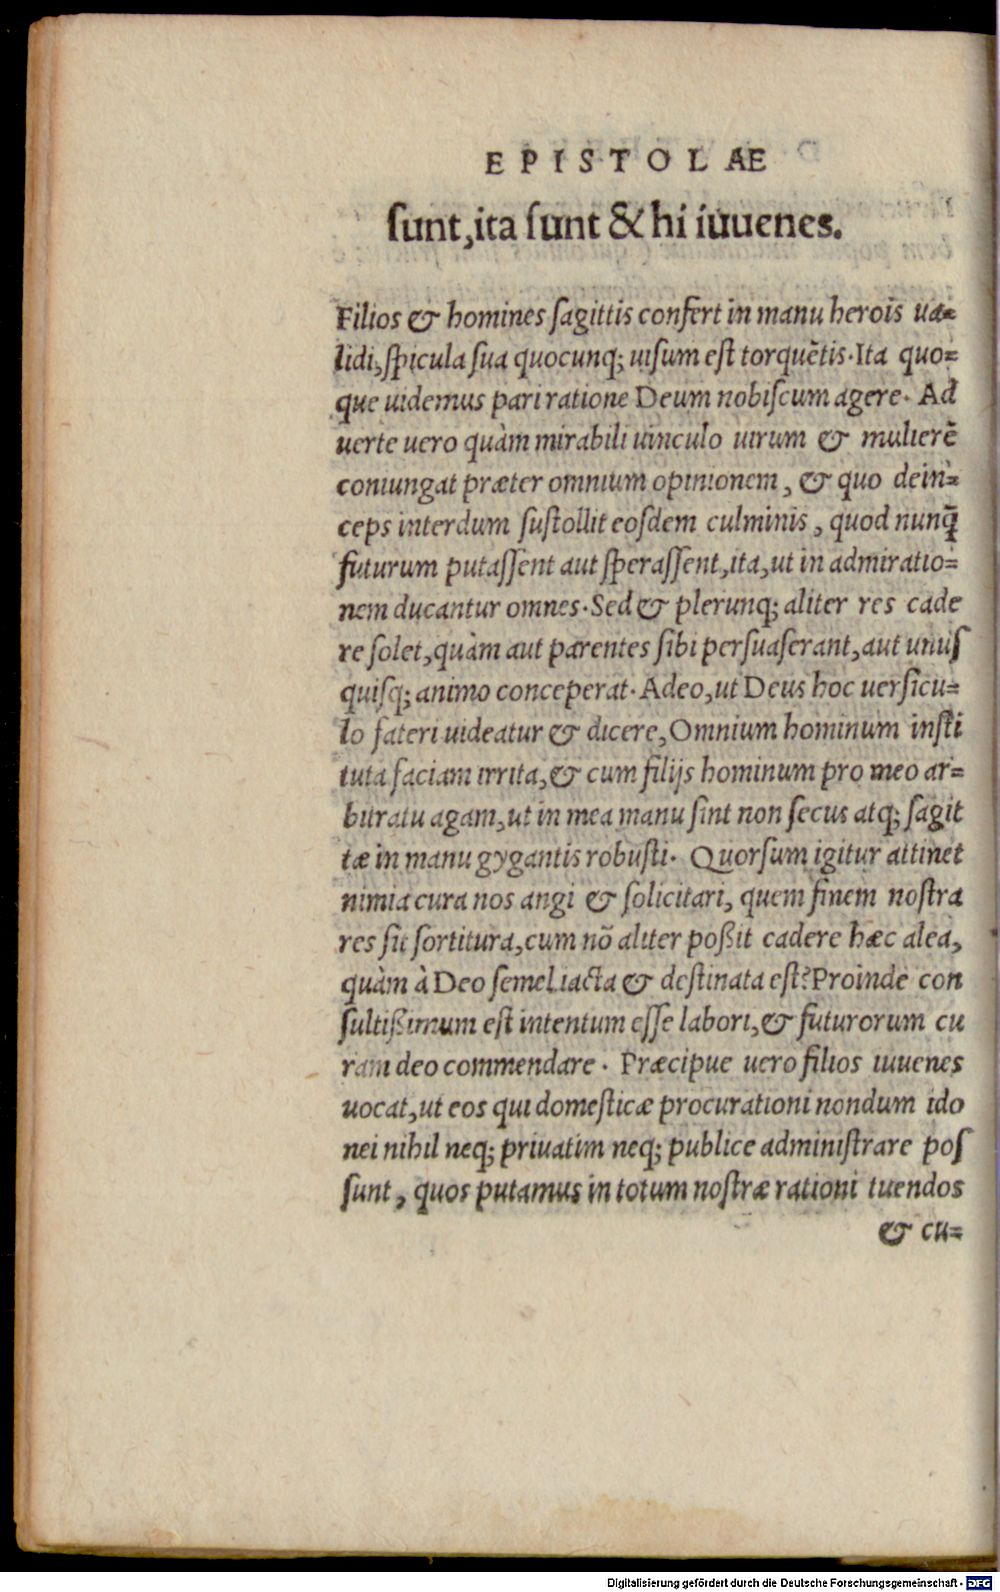 EPISTOLAE
ſunt,ita ſunt & hi iuuenes.
Filios & homines ſagittis confert in manu herois ua=
lidi,ſpicula sua quocunq; uiſum eſt torquētis. Ita quo=
que uidemus pari ratione Deum nobiſcum agere. Ad
uerte uero quàm mirabili uinculo uirum & mulierē
coniungat præter omnium opinionem, & quo dein=
ceps interdum ſuſtollit eoſdem culminis, quod nunq̃
futurum putaſſent aut ſperaſſent,ita,ut in admiratio=
nem ducantur omnes. Sed & plerunq; aliter res cade
re ſolet,quàm aut parentes ſibi perſuaſerant,aut unuſ
quiſq; animo conceperat. Adeo,ut Deus hoc uerſicu=
lo fateri uideatur & dicere,Omnium hominum inſti
tuta faciam irrita,& cum filijs hominum pro meo ar=
bitratu agam,ut in mea manu ſint non ſecus atq; ſagit
tæ in manu gygantis robuſti. Quorſum igitur attinet
nimia cura nos angi & ſolicitari, quem finem noſtra
res ſit ſortitura,cum nō aliter poßit cadere hæc alea,
quàm à Deo ſemel iacta & deſtinata eſt? Proinde con
ſultißimum eſt intentum eſſe labori,& futurorum cu
ram deo commendare. Præcipue uero filios iuuenes
uocat,ut eos qui domeſticæ procurationi nondum ido
nei nihil neq; priuatim neq; publice adminiſtrare poſ
ſunt, quos putamus in totum noſtræ rationi tuendos
& cu=
Digitalisierung gefördert durch die Deutsche Forschungsgemeinschaft - DFG